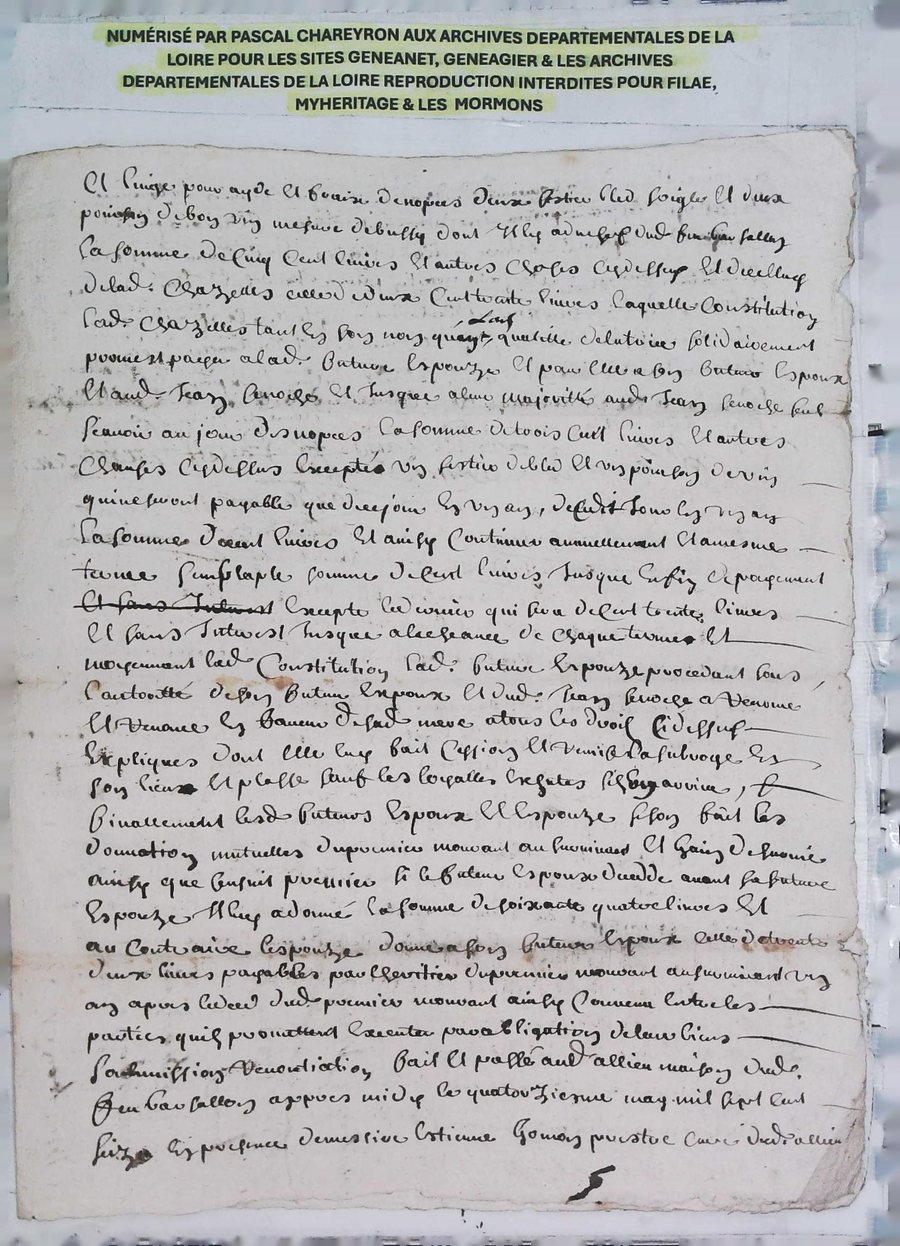 NUMÉRISÉ PAR PASCAL CHAREYRON AUX ARCHIVES DEPARTEMENTALES DE LA
LOIRE POUR LES SITES GENEANET, GENEAGIER & LES ARCHIVES
DEPARTEMENTALES DE LA LOIRE REPRODUCTION INTERDITES POUR FILAE,
MYHERITAGE & LES MORMONS
Et linge pour ayde Et fraix denopces deux bled soigle Et deux
de bon vin mesure debussy dont Il luy dud feu
La somme de Cinq Cent livres Et autres choses cydessus Et
delad. Chazelles celle de deux Cent trente livres laquelle Constitution
lad. Chazelles tant en son nom qualitté de tutrice solidairement
promest payer alad. future Espouze Et pour Elle a son futur Espoux
Et aud. Jean Et Jusque a leur majoritté aud. Jean
scavoir au jour desnopces La somme detrois Cent livres Et autres
choses cydessus Excepté un sestier debled Et un poinson de vin
quineseront payable que dece jour En un an, En un an
La somme decent livres Et ainsy Continuer annuellement Et amesme
terme semblable somme de Cent livres Jusque Enfin depayement
Et sans Interest Excepté le dernier qui sera decent trente livres
Et sans Interest Jusque alecheance de chaque terme Et
moyennant lad. Constitution lad. future Espouze procedant sous
Lautoritté deson futur Espoux Et dud. Jean a Renoncé
Et Renonce En faveur desad. mere atous les droits Cidessus
Expliqués dont Elle luy fait Cession Et remise La subroge En
son lieux Et plasse sauf les loyalles Eschutes
finallement lesd. futurs Espoux Et Espouze se son fait les
donnation mutuelles dupremier mourant au survivant Et Gain de survie
ainsy que sensuit premier si le futur Espoux decedde avant sa future
Espouze Il luy a donné La somme de soixante quatre livres Et
au Contraire lespouze donne a son futur Espoux celle de trente
deux livres payables par lheritier dupremier mourant ausurvivant un
an apres ledeced dud. premier mourant ainsy Convenu Entre les
parties quils promettent Executer par obligation deleur biens
soubmission Renontiation fait Et passé aud. allieu maison dud.
feu appres midy le quatorziesme may mil sept cent
seize En presence demessire Estienne prestre curé dud. allieu